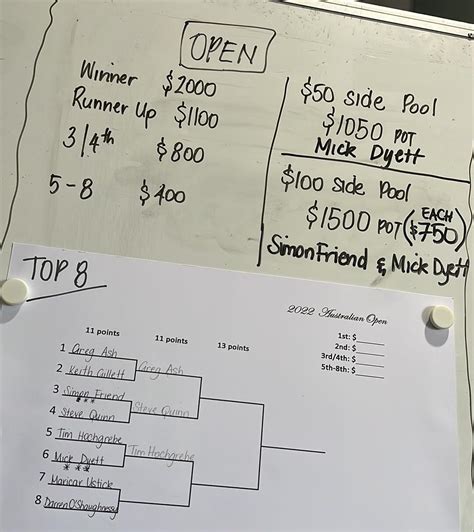 OPEN
Winner $2000
Runner Up $1100
3/4th $800
5-8 $400
$50 side Pool
$1050 POT
Mick Dyett
$100 side Pool
$1500 POT (EACH $750)
Simon Friend & Mick Dyett
TOP 8
2022 Australian Open
1st: $
2nd: $
3rd/4th: $
5th-8th: $
11 points 11 points 13 points
1 Greg Ash
Greg Ash
2 Keith Gillett
3 Simon Friend
***
Steve Quinn
4 Steve Quinn
5 Tim Hochgrebe
Tim Hochgrebe
6 Mick Dyett
***
7 Maricar Ustick
8 Darren O'Shaughnessy